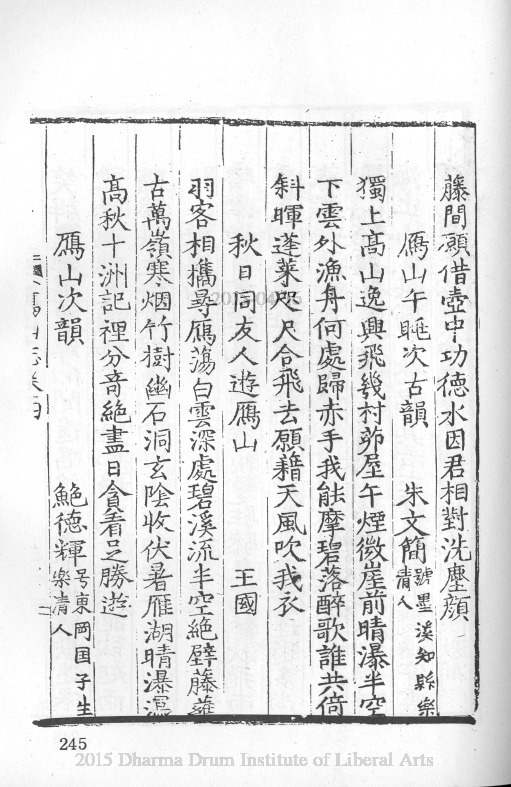 藤間願借壺中功德水因君相對洗塵顔
鴈山午眺次古韻 朱文簡 號墨溪知縣樂清人
獨上髙山逸興飛幾村茆屋午煙微崖前晴瀑半空
下雲外漁舟何處歸赤手我能摩碧落醉歌誰共倚
斜暉蓬萊咫尺合飛去願藉天風吹我衣
秋日同友人遊鴈山 王國
羽客相攜尋鴈蕩白雲深處碧溪流半空絶壁藤蘿
古萬嶺寒烟竹樹幽石洞玄陰收伏暑雁湖晴瀑瀉
髙秋十洲記裡分竒絶盡日貪看足勝遊
鴈山次韻 鮑德輝 号東岡国子生樂清人
山志卷四
245
2015 Dharma Drum Institute of Liberal Arts